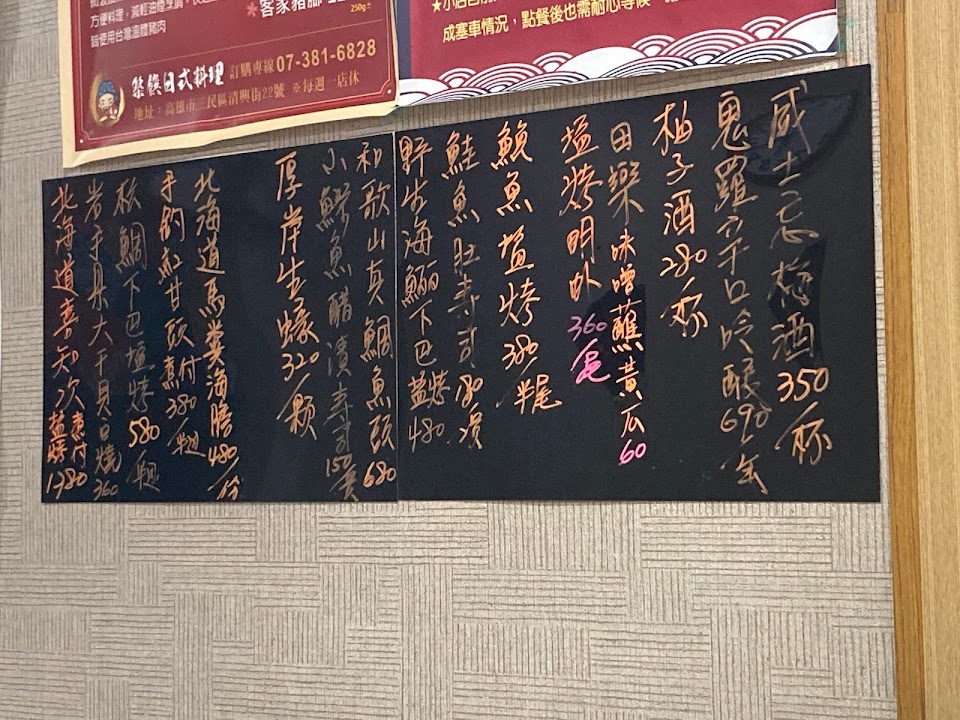 方便料理，減輕油煙
皆使用台灣溫體豬肉
*客家豬腳
250g±
築饌日式料理 訂購專線07-381-6828
地址：高雄市三民區清興街22號 ※每週一店休
成塞車情況，點餐後也需耐心等候
威士忌梅酒350/杯
鬼羅 辛口吟釀690/缶
柚子酒280/杯
田樂味噌蘸黃瓜60
塩烤明卟360/尾
鯢魚塩烤380/半尾
鮭魚肚壽司180/貫
野生海鱺下巴塩烤480
和歌山真鯛魚頭680
小鰶魚醋漬壽司150/貫
厚岸生蠔320/顆
北海道馬糞海膽480/份
手釣紅甘頭煮付380/
板鯛下巴塩烤580/
岩手県大干貝串燒360
北海道喜知次 煮付 塩烤1380